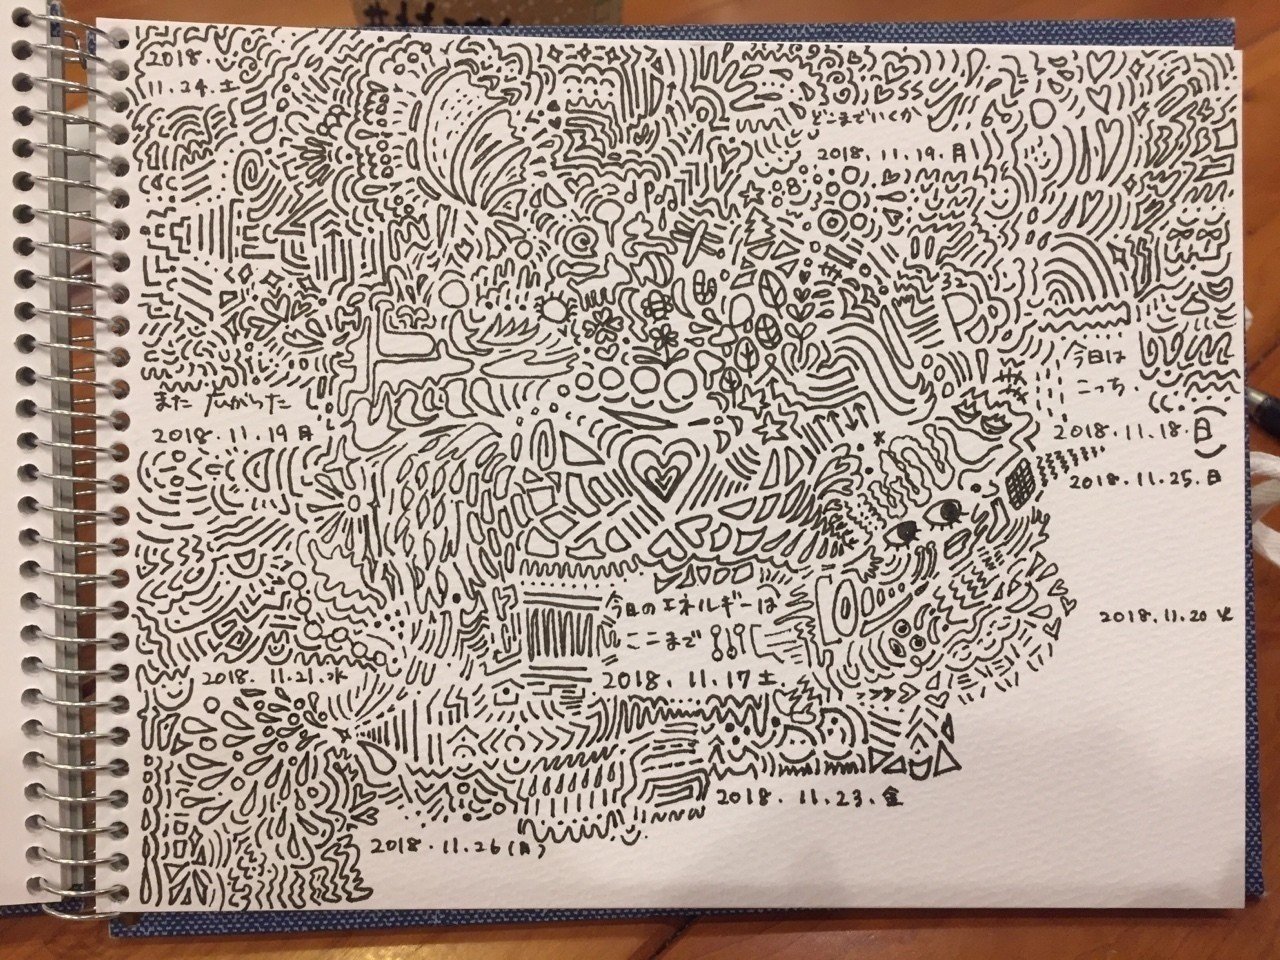 2018.
11.24.土
どこまでいくか
2018.11.19.月
今日は
こっち.
また 広がった
2018.11.19月
2018.11.18.日
2018.11.25.日
今日のエネルギーは
ここまで
2018.11.20火
2018.11.21.水
2018.11.17土.
2018.11.23.金
2018.11.26(月)